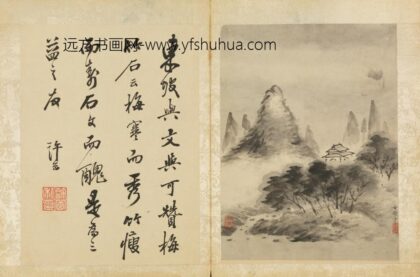 远方书画网 www.yfshuhua.com
東坡與文與可贊梅
竹石云梅寒而秀竹瘦
而壽石文而醜是為三
益之友